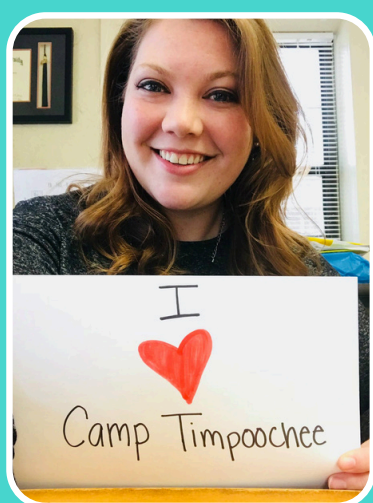 I
Camp Timpoochee